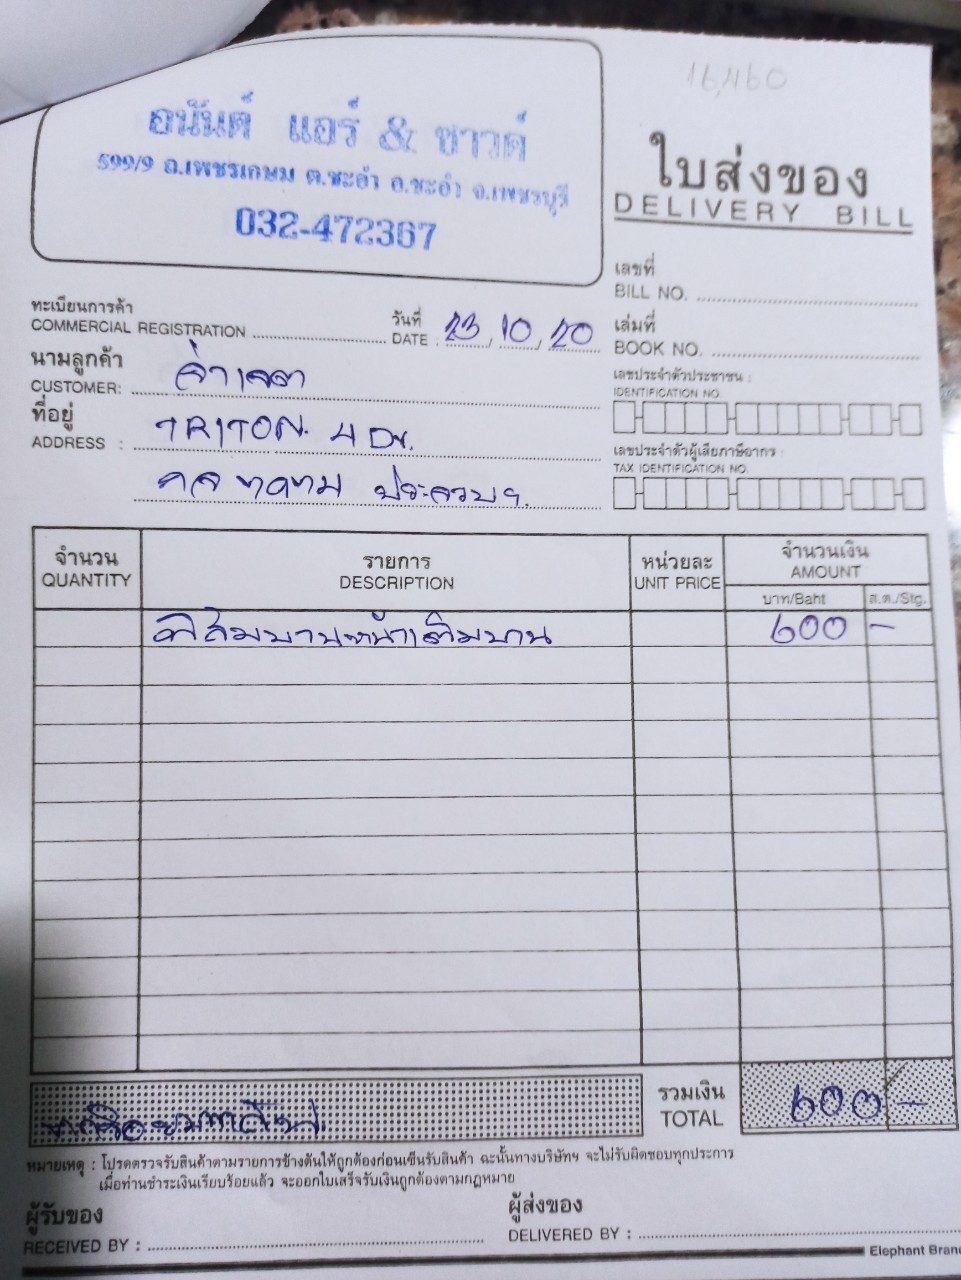 16,460
อนันต์ แอร์ & ซาวด์
599/9 ถ.เพชรเกษม ต.ชะอำ อ.ชะอำ จ.เพชรบุรี
032-472367
ใบส่งของ
DELIVERY BILL
เลขที่
BILL NO.
ทะเบียนการค้า
COMMERCIAL REGISTRATION
วันที่
DATE : 23, 10, 20
เล่มที่
BOOK NO.
นามลูกค้า
CUSTOMER: จ่าเจต
ที่อยู่
ADDRESS : TRITON 4 Dr.
ประจวบฯ.
เลขประจำตัวประชาชน :
IDENTIFICATION NO.
เลขประจำตัวผู้เสียภาษีอากร :
TAX IDENTIFICATION NO.
จำนวน รายการ หน่วยละ จำนวนเงิน
QUANTITY DESCRIPTION UNIT PRICE AMOUNT
บาท/Baht ส.ต./Stg.
ฟิล์มบานหน้าเต็มบาน 600 -
รวมเงิน
TOTAL 600 -
หมายเหตุ : โปรดตรวจรับสินค้าตามรายการข้างต้นให้ถูกต้องก่อนเซ็นรับสินค้า ฉะนั้นทางบริษัทฯ จะไม่รับผิดชอบทุกประการ
เมื่อท่านชำระเงินเรียบร้อยแล้ว จะออกใบเสร็จรับเงินถูกต้องตามกฎหมาย
ผู้รับของ
RECEIVED BY :
ผู้ส่งของ
DELIVERED BY :
Elephant Brand